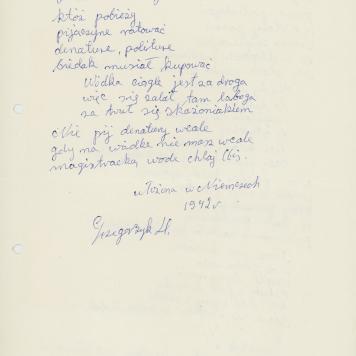 któż pobieży
pijaczynę ratować
denaturę, politurę
biedak musiał kupować
Wódka ciągle jest za droga
więc się zalał tam łaboga
za truł się skażoniakiem
Nie pij denatury wcale
gdy na wódkę nie masz wcale
magistracką wodę chlaj (bis).
ułożona w Niemczech
1942 r
Grzegorzyk H.